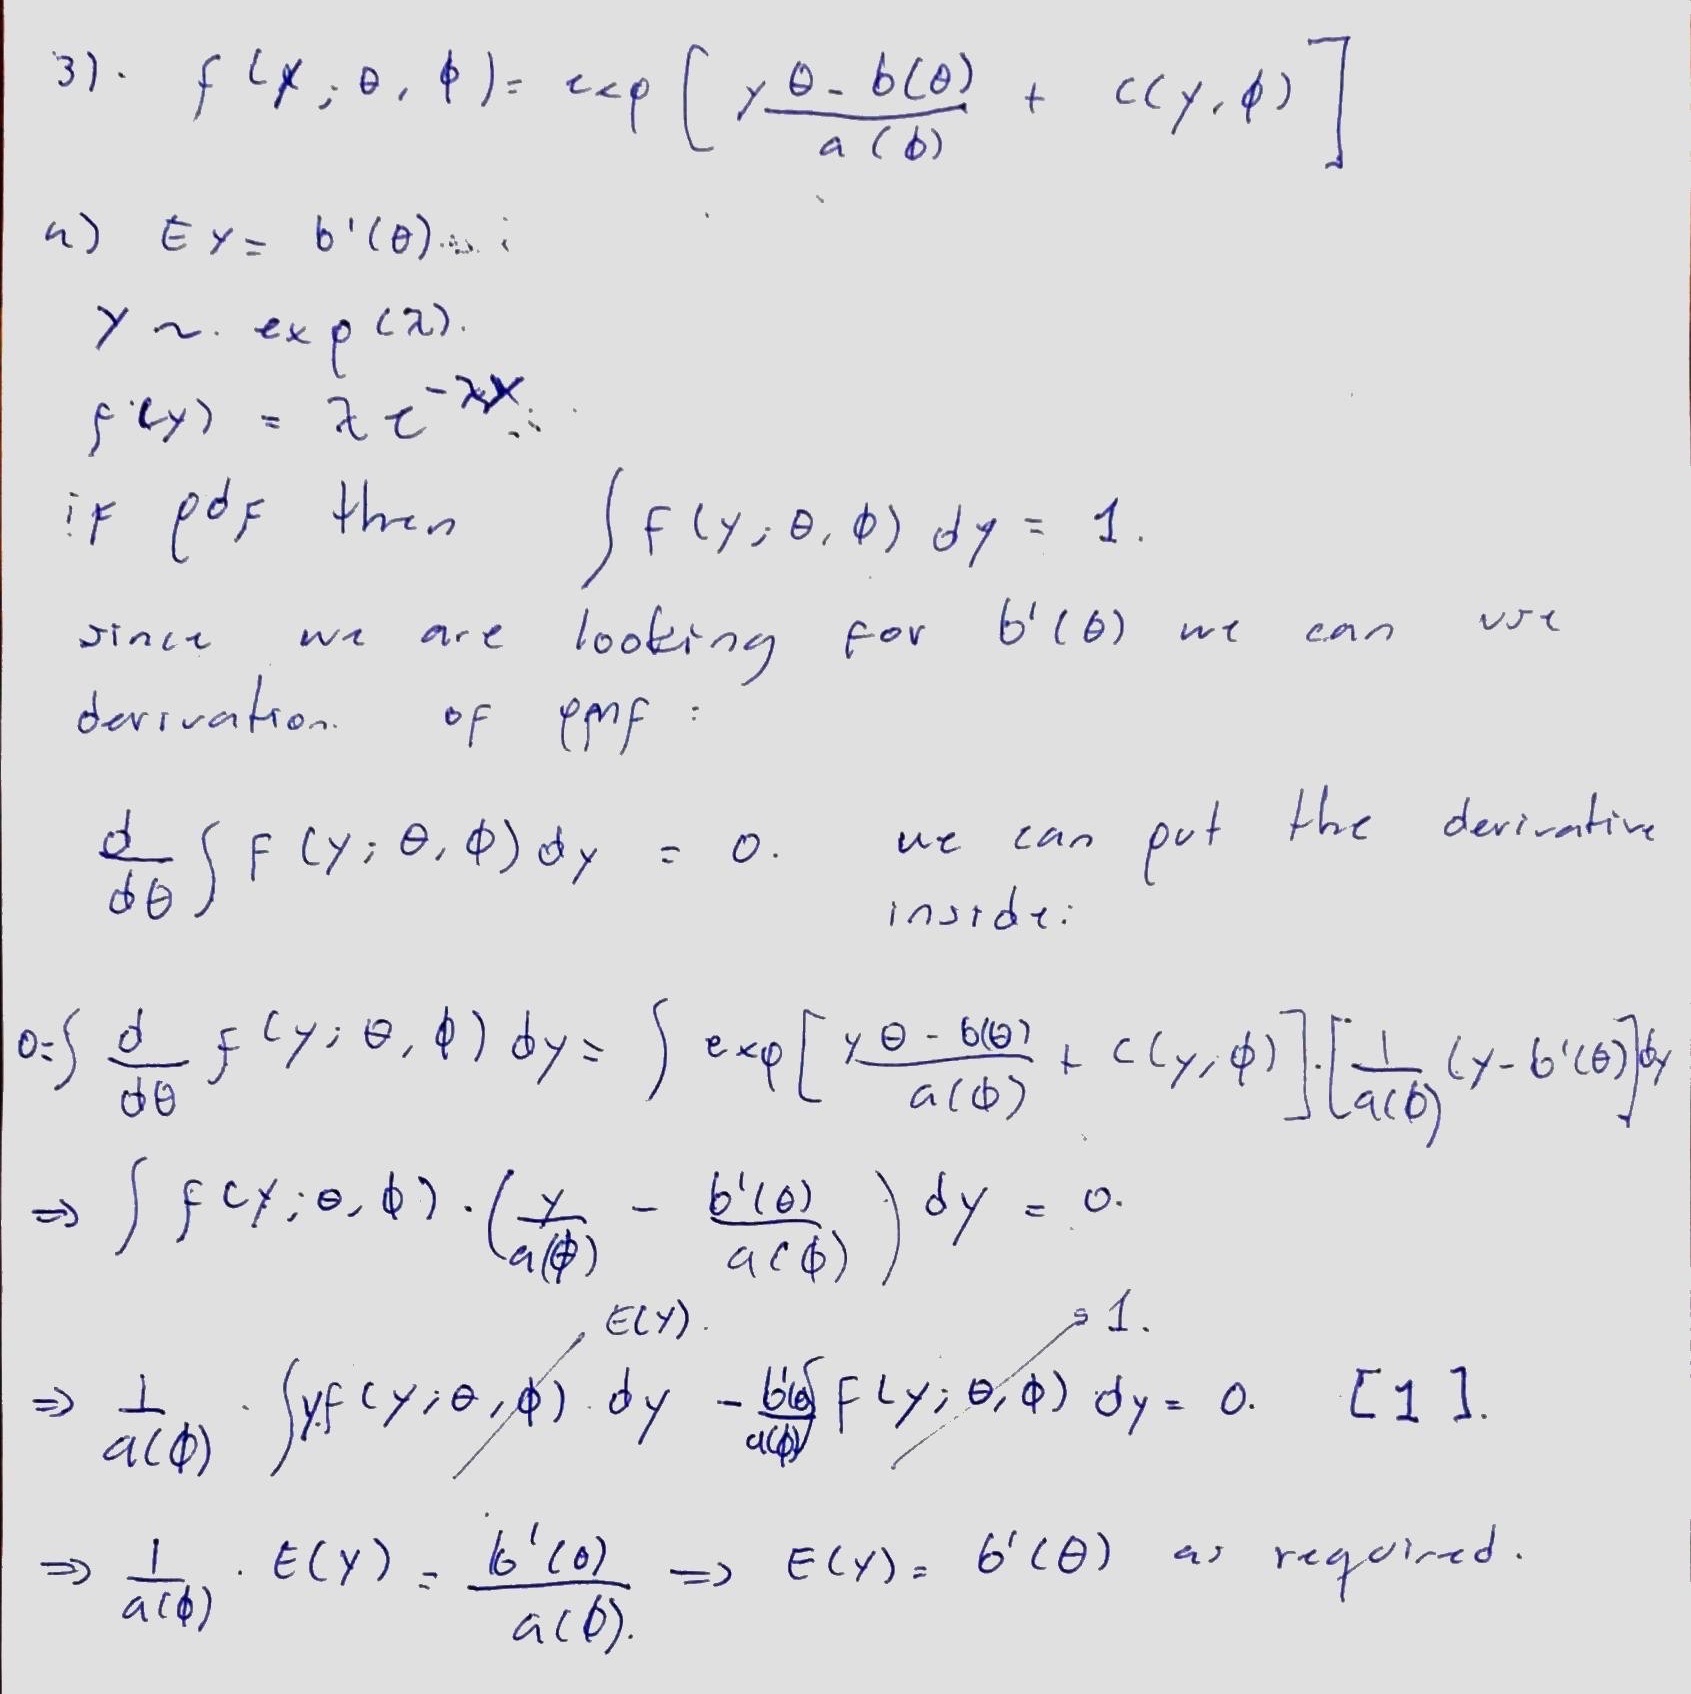 3). f(y; θ, ϕ) = exp [ (yθ - b(θ))/a(ϕ) + c(y, ϕ) ]
a) EY = b'(θ)
Y ~ exp(λ).
f(y) = λe^{-λy}
if pdf then ∫ f(y; θ, ϕ) dy = 1.
since we are looking for b'(θ) we can use
derivation of pmf :
d/dθ ∫ f(y; θ, ϕ) dy = 0. we can put the derivative
inside:
0 = ∫ d/dθ f(y; θ, ϕ) dy = ∫ exp [ (yθ - b(θ))/a(ϕ) + c(y, ϕ) ] · [ 1/a(ϕ) (y - b'(θ) ] dy
⇒ ∫ f(y; θ, ϕ) · ( y/a(ϕ) - b'(θ)/a(ϕ) ) dy = 0.
E(Y). 1.
⇒ 1/a(ϕ) · ∫ y.f(y; θ, ϕ) dy - b'(θ)/a(ϕ) ∫ f(y; θ, ϕ) dy = 0. [1].
⇒ 1/a(ϕ) · E(Y) = b'(θ)/a(ϕ). ⇒ E(Y) = b'(θ) as required.